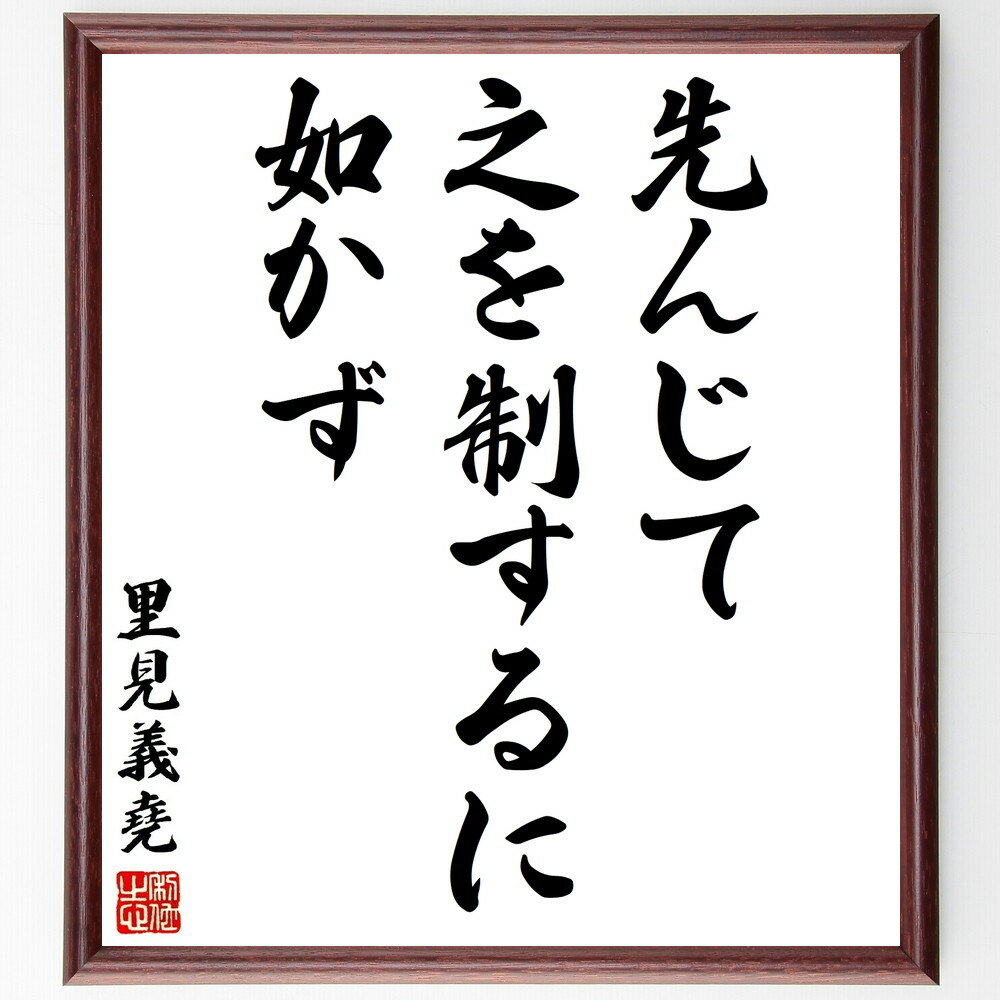 先んじて
之を制するに
如かず
里見義堯